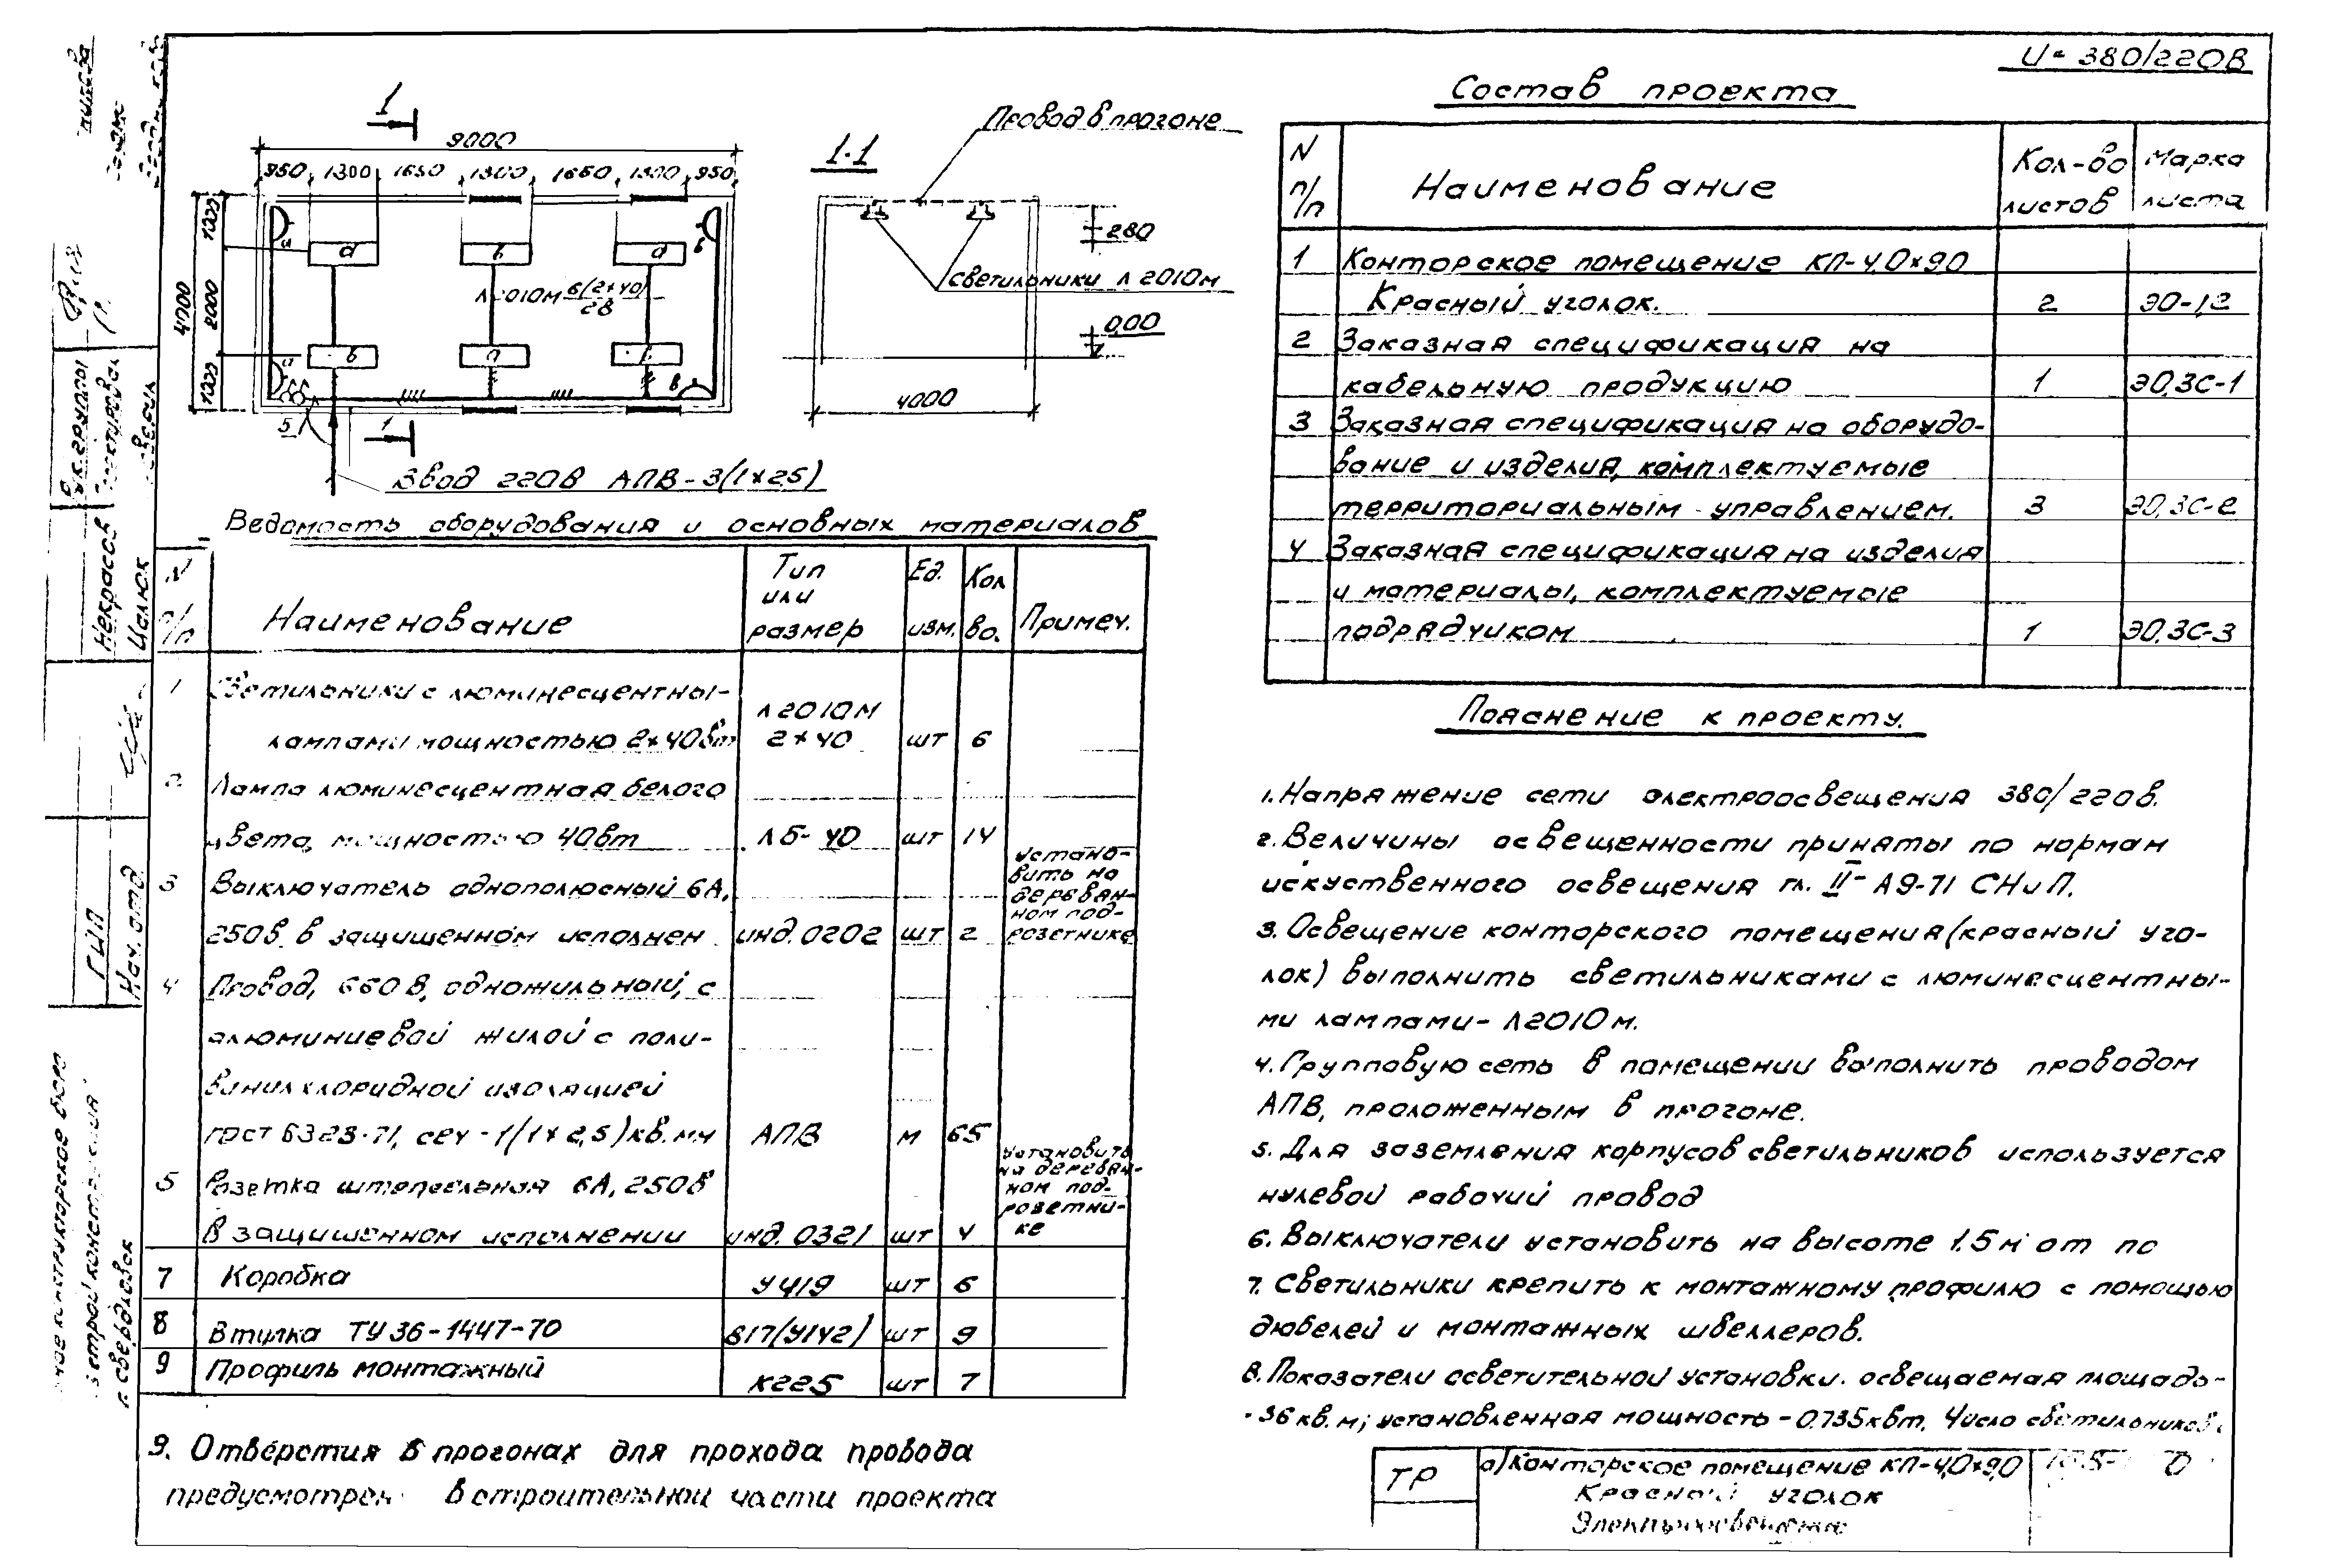 U= 380/220В
1
9000
950 1300 1650 1300 1650 1300 950
4000
1000 2000 1000
а в а
6(2×40)
28
в а
5
1
Ввод 220В АПВ-3(1×25)
1-1
Провод в прогоне
280
Светильники Л2010м
0,00
4000
Ведомость оборудования и основных материалов
N п/п Наименование Тип или размер Ед. изм. Кол во. Примеч.
1 Светильники с люминесцентны-
лампами мощностью 2×40вт Л2010М 2×40 шт 6
2 Лампа люминесцентная белого
цвета, мощностью 40вт ЛБ-40 шт 14
3 Выключатель однополюсный 6А,
250в, в защищенном исполнен инд.0202 шт 2 Устано-
вить на
деревян-
ном под-
розетнике
4 Провод, 660В, одножильный, с
алюминиевой жилой с поли-
винилхлоридной изоляцией
гост 6323-71, сеч-1(1×2,5)кв.мм АПВ м 65
5 Розетка штепсельная 6А, 250в
в защищенном исполнении инд. 0321 шт 4 Установить
на деревян-
ном под-
розетни-
ке
7 Коробка У419 шт 6
8 Втулка ТУ36-1447-70 В17(У142) шт 9
9 Профиль монтажный К225 шт 7
9. Отверстия в прогонах для прохода провода
предусмотрен в строительной части проекта
Состав проекта
N п/п Наименование Кол-во листов Марка листа
1 Конторское помещение КП-4,0×9,0
Красный уголок. 2 ЭО-1,2
2 Заказная спецификация на
кабельную продукцию 1 ЭО,ЗС-1
3 Заказная спецификация на оборудо-
вание и изделия, комплектуемые
территориальным управлением. 3 ЭО,ЗС-2
4 Заказная спецификация на изделия
и материалы, комплектуемые
подрядчиком 1 ЭО,ЗС-3
Пояснение к проекту.
1. Напряжение сети электроосвещения 380/220в.
2. Величины освещенности приняты по нормам
искуственного освещения гл. II-А9-71 СНиП.
3. Освещение конторского помещения (красный уго-
лок) выполнить светильниками с люминесцентны-
ми лампами-Л2010м.
4. Групповую сеть в помещении выполнить проводом
АПВ, проложенным в прогоне.
5. Для заземления корпусов светильников используется
нулевой рабочий провод
6. Выключатели установить на высоте 1.5м от по
7. Светильники крепить к монтажному профилю с помощью
дюбелей и монтажных швеллеров.
8. Показатели осветительной установки. освещаемая площадь-
-36 кв.м; установленная мощность-0.735квт. Число светильников
ТР
а) Конторское помещение КП-4,0×9,0
Красный уголок
Электроосвещение
ГИП
Нач. отд.
Некрасов
Шалюк
Рук. группы
Проектировал
г. Свердловск